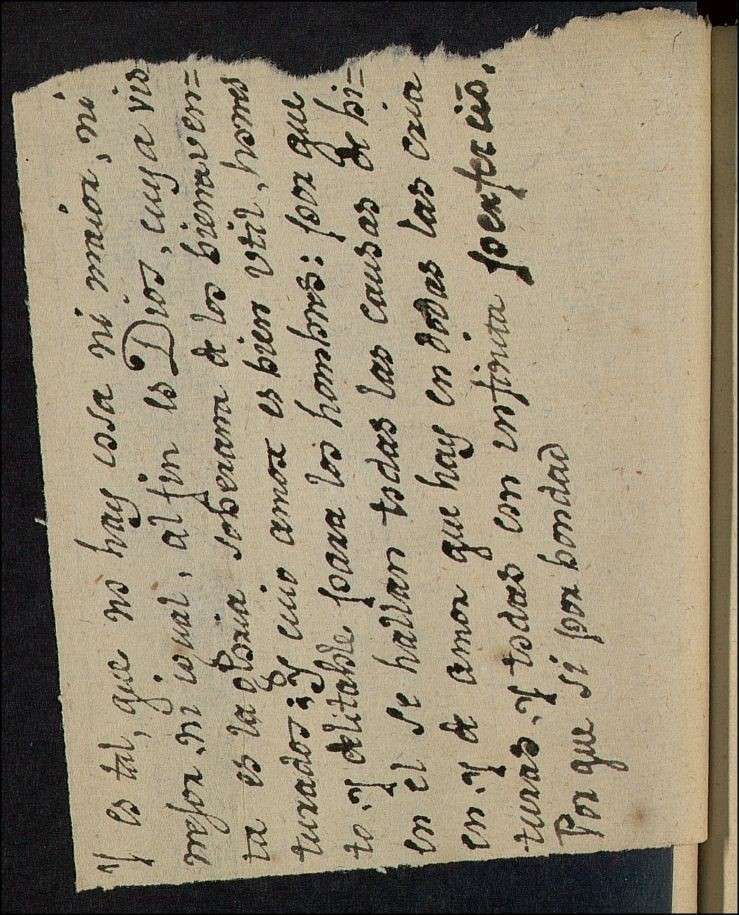 Y es tal, que no hay cosa ni maior, ni
mejor, ni igual, al fin es Dios, cuya vis-
ta es la gloria soberana de los bienaven=
turados; y cuio amor es bien util, hones
to, y delitable para los hombres: por que
en el se hallan todas las causas de bi=
en, y de amor que hay en todas las cria
turas, y todas con infinita perfeciõ.
Por que si por bondad